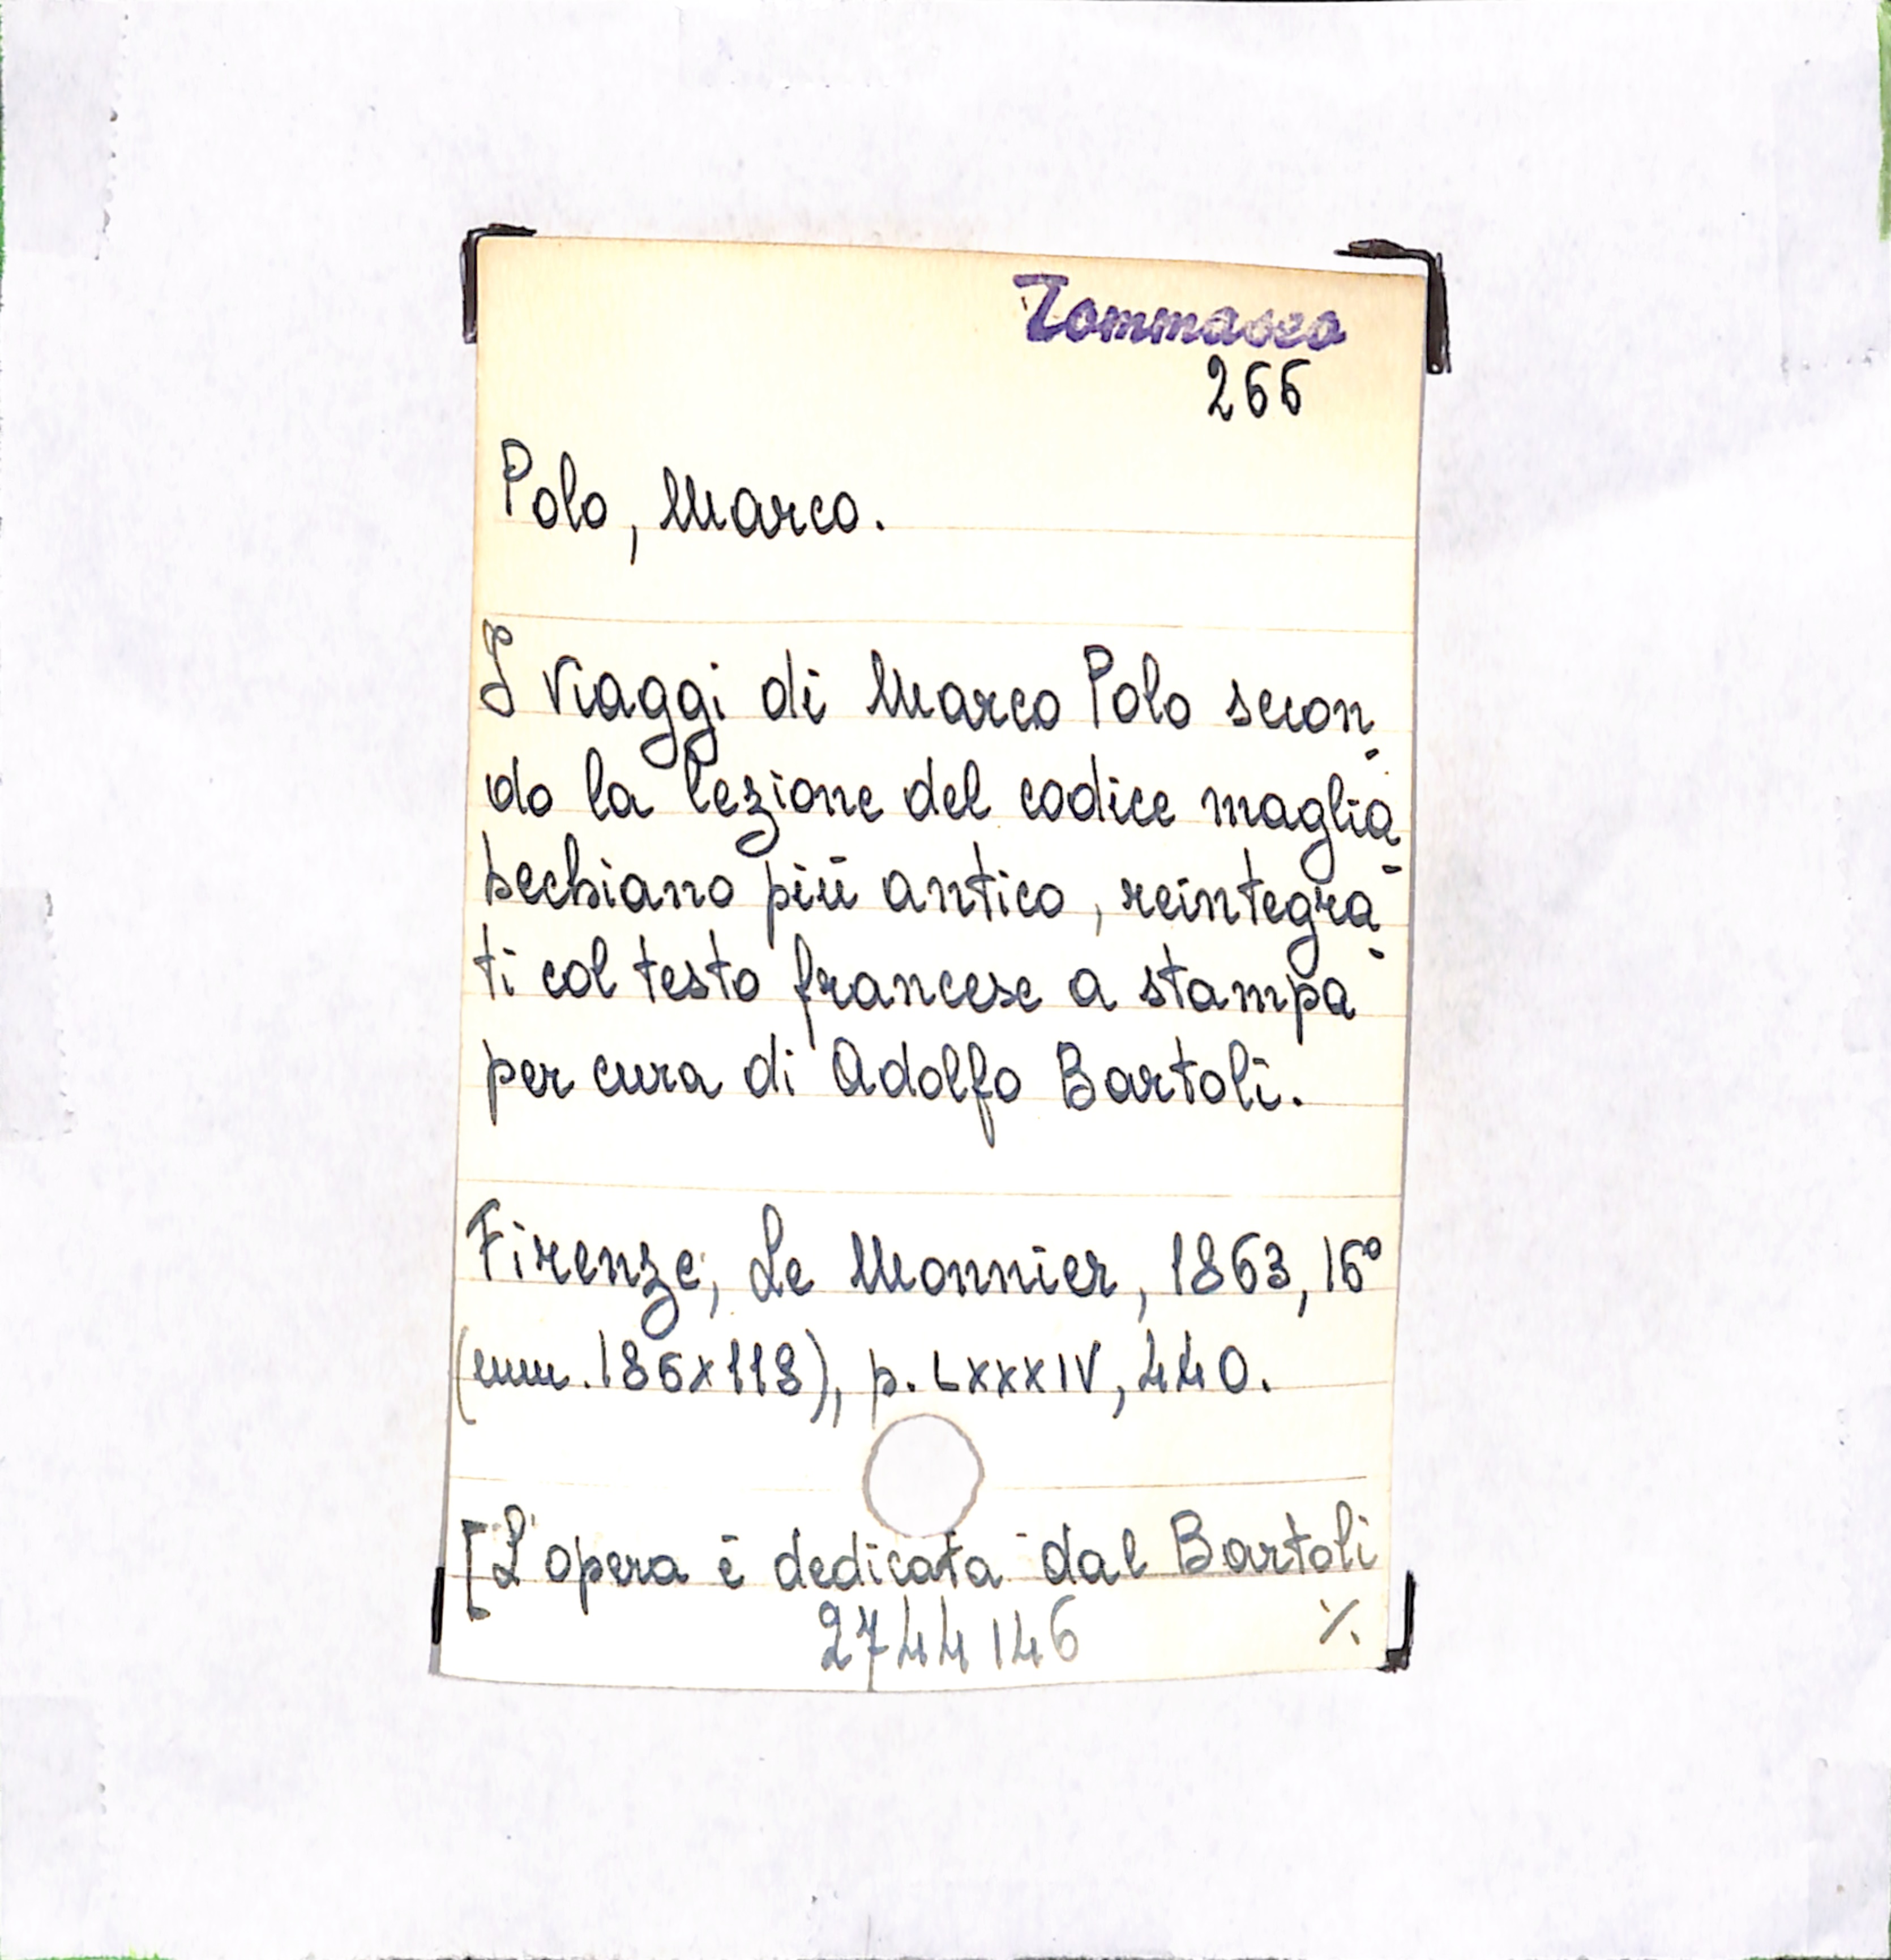 Tommaseo
266
Polo, Marco.
I viaggi di Marco Polo secon-
do la lezione del codice maglia-
bechiano più antico, reintegra-
ti col testo francese a stampa
per cura di Adolfo Bartoli.
Firenze, Le Monnier, 1863, 16°
(mm. 186x118), p. LXXXIV, 440.
[L'opera è dedicata dal Bartoli
2744146 ./.